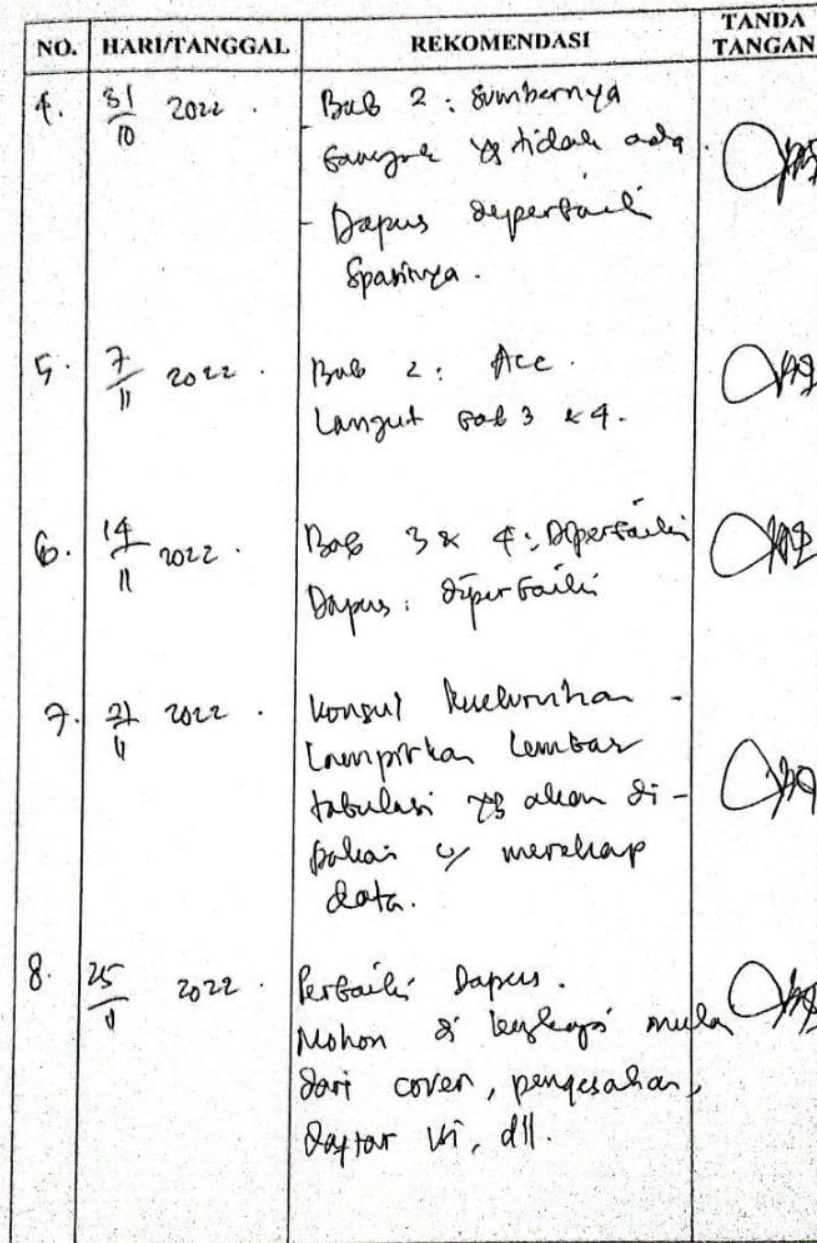 NO. HARI/TANGGAL REKOMENDASI TANDA TANGAN
4. 31/10 2022. Bab 2 : sumbernya
banyak yg tidak ada.
- Dapus diperbaiki
spasinya.
5. 7/11 2022. Bab 2 : Acc.
Langut bab 3 & 4.
6. 14/11 2022. Bab 3 & 4 : Diperbaiki
Dapus : diperbaiki
7. 21/11 2022. Konsul keseluruhan -
Lampirkan lembar
tabulasi yg akan di-
pakai u/ merekap
data.
8. 25/11 2022. Perbaiki Dapus.
Mohon di lengkapi mulai
dari cover, pengesahan,
daftar isi, dll.